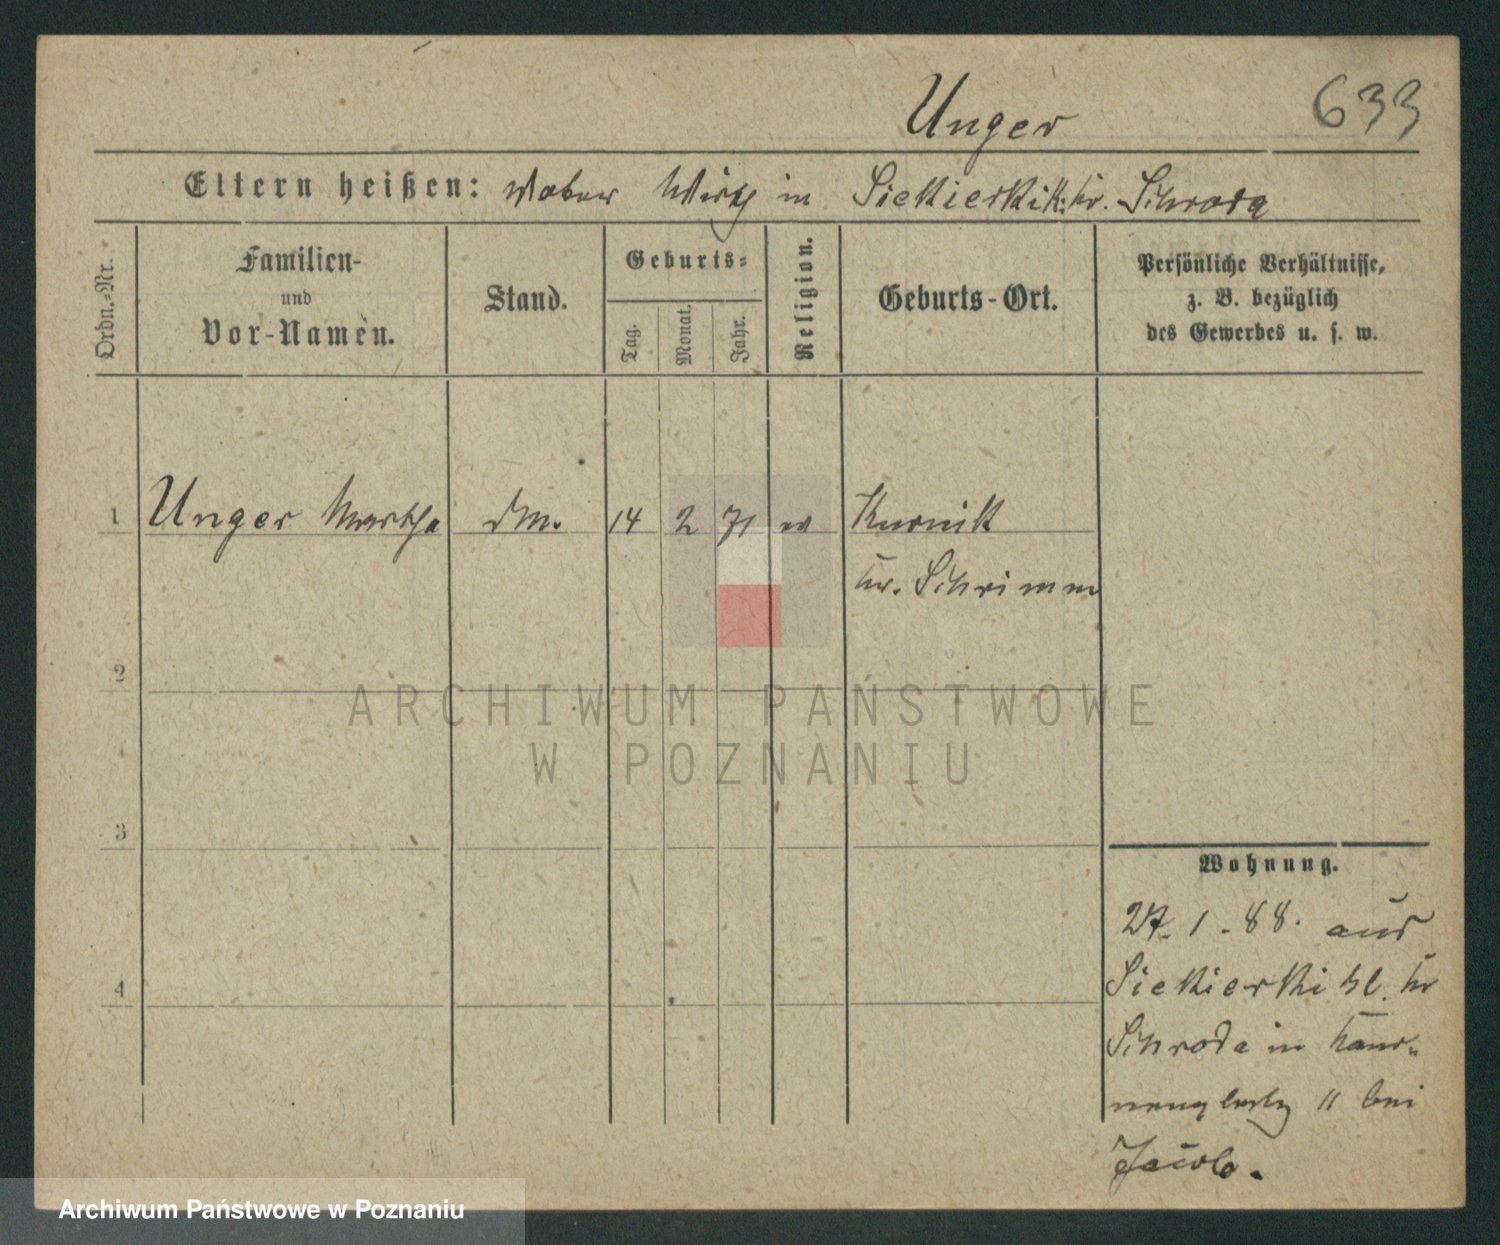 Unger 633
Eltern heißen: Vater Wirth in Siekierki kl: Kr. Schroda
Ordn.=Nr.
Familien-
und
Vor-Namen.
Stand.
Geburts=
Tag.
Monat.
Jahr.
Religion.
Geburts-Ort.
Persönliche Verhältnisse,
z. B. bezüglich
des Gewerbes u. s. w.
1 Unger Martha DM. 14 2 71 ev Kurnik
Kr. Schrimm
2
3
4
Wohnung.
27. 1. 88. aus
Siekierki kl. Kr
Schroda in
11 bei
Jacob.
ARCHIWUM PAŃSTWOWE
W POZNANIU
Archiwum Państwowe w Poznaniu